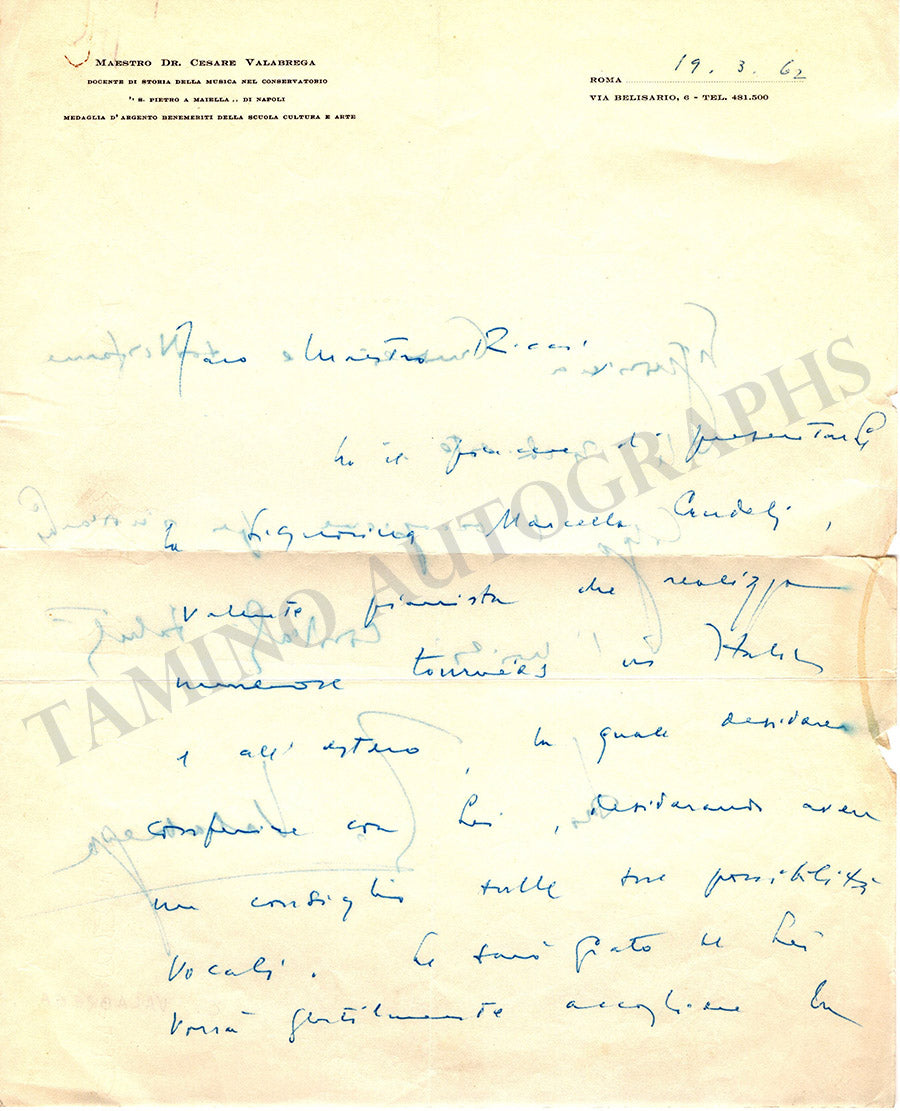 MAESTRO DR. CESARE VALABREGA
DOCENTE DI STORIA DELLA MUSICA NEL CONSERVATORIO
"S. PIETRO A MAIELLA„ DI NAPOLI
MEDAGLIA D'ARGENTO BENEMERITI DELLA SCUOLA CULTURA E ARTE
ROMA 19. 3. 62
VIA BELISARIO, 6 - TEL. 481.500
Caro Maestro Ricci
ho il piacere di presentarLe
la Signorina Marcella
valente pianista che realizza
numerose tournées in Italia
e all'estero, la quale desidera
conferire con Lei, desiderando avere
un consiglio sulle sue possibilità
vocali. Le sarò grato se Lei
vorrà gentilmente accogliere la
TAMINO AUTOGRAPHS